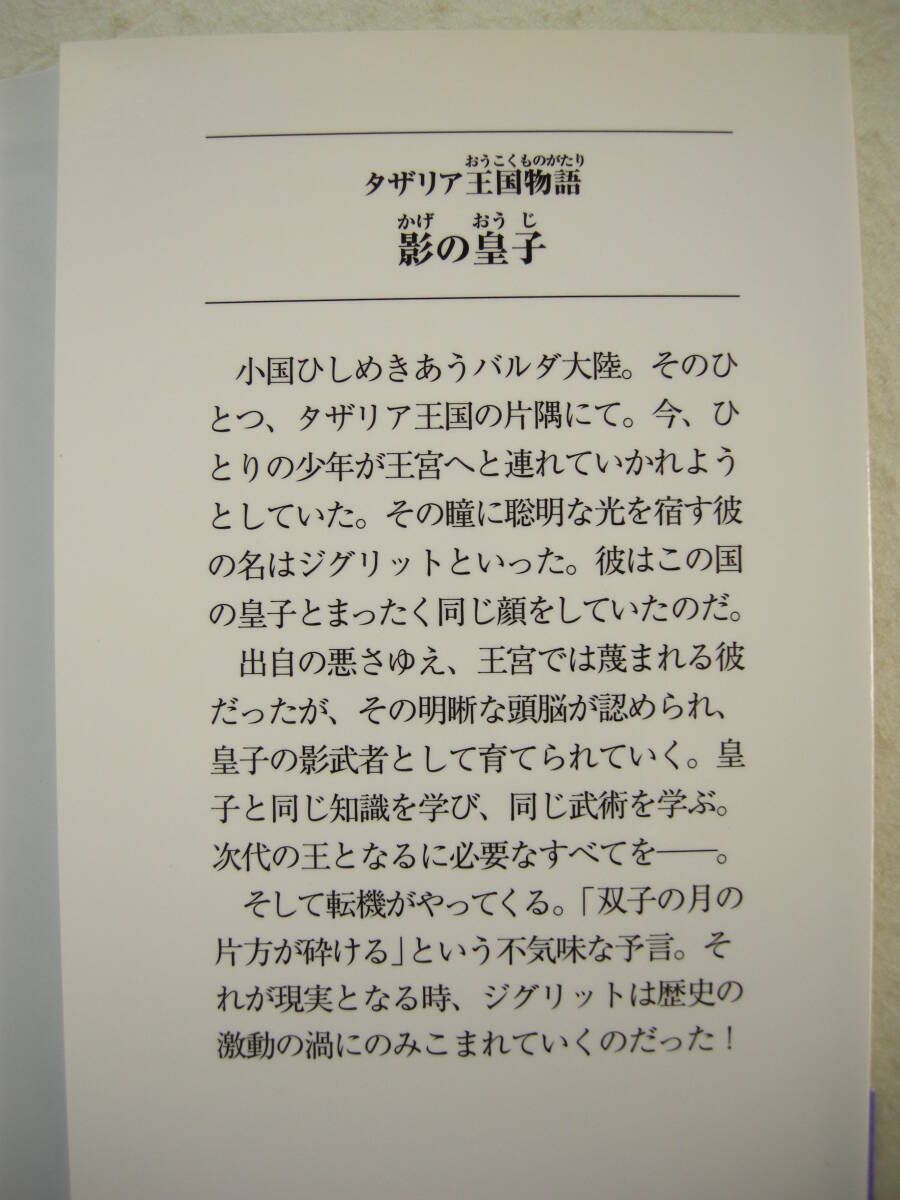 おうこくものがたり
タザリア王国物語
かげ おうじ
影の皇子
小国ひしめきあうバルダ大陸。そのひ
とつ、タザリア王国の片隅にて。今、ひ
とりの少年が王宮へと連れていかれよう
としていた。その瞳に聡明な光を宿す彼
の名はジグリットといった。彼はこの国
の皇子とまったく同じ顔をしていたのだ。
出自の悪さゆえ、王宮では蔑まれる彼
だったが、その明晰な頭脳が認められ、
皇子の影武者として育てられていく。皇
子と同じ知識を学び、同じ武術を学ぶ。
次代の王となるに必要なすべてを――。
そして転機がやってくる。「双子の月の
片方が砕ける」という不気味な予言。そ
れが現実となる時、ジグリットは歴史の
激動の渦にのみこまれていくのだった！